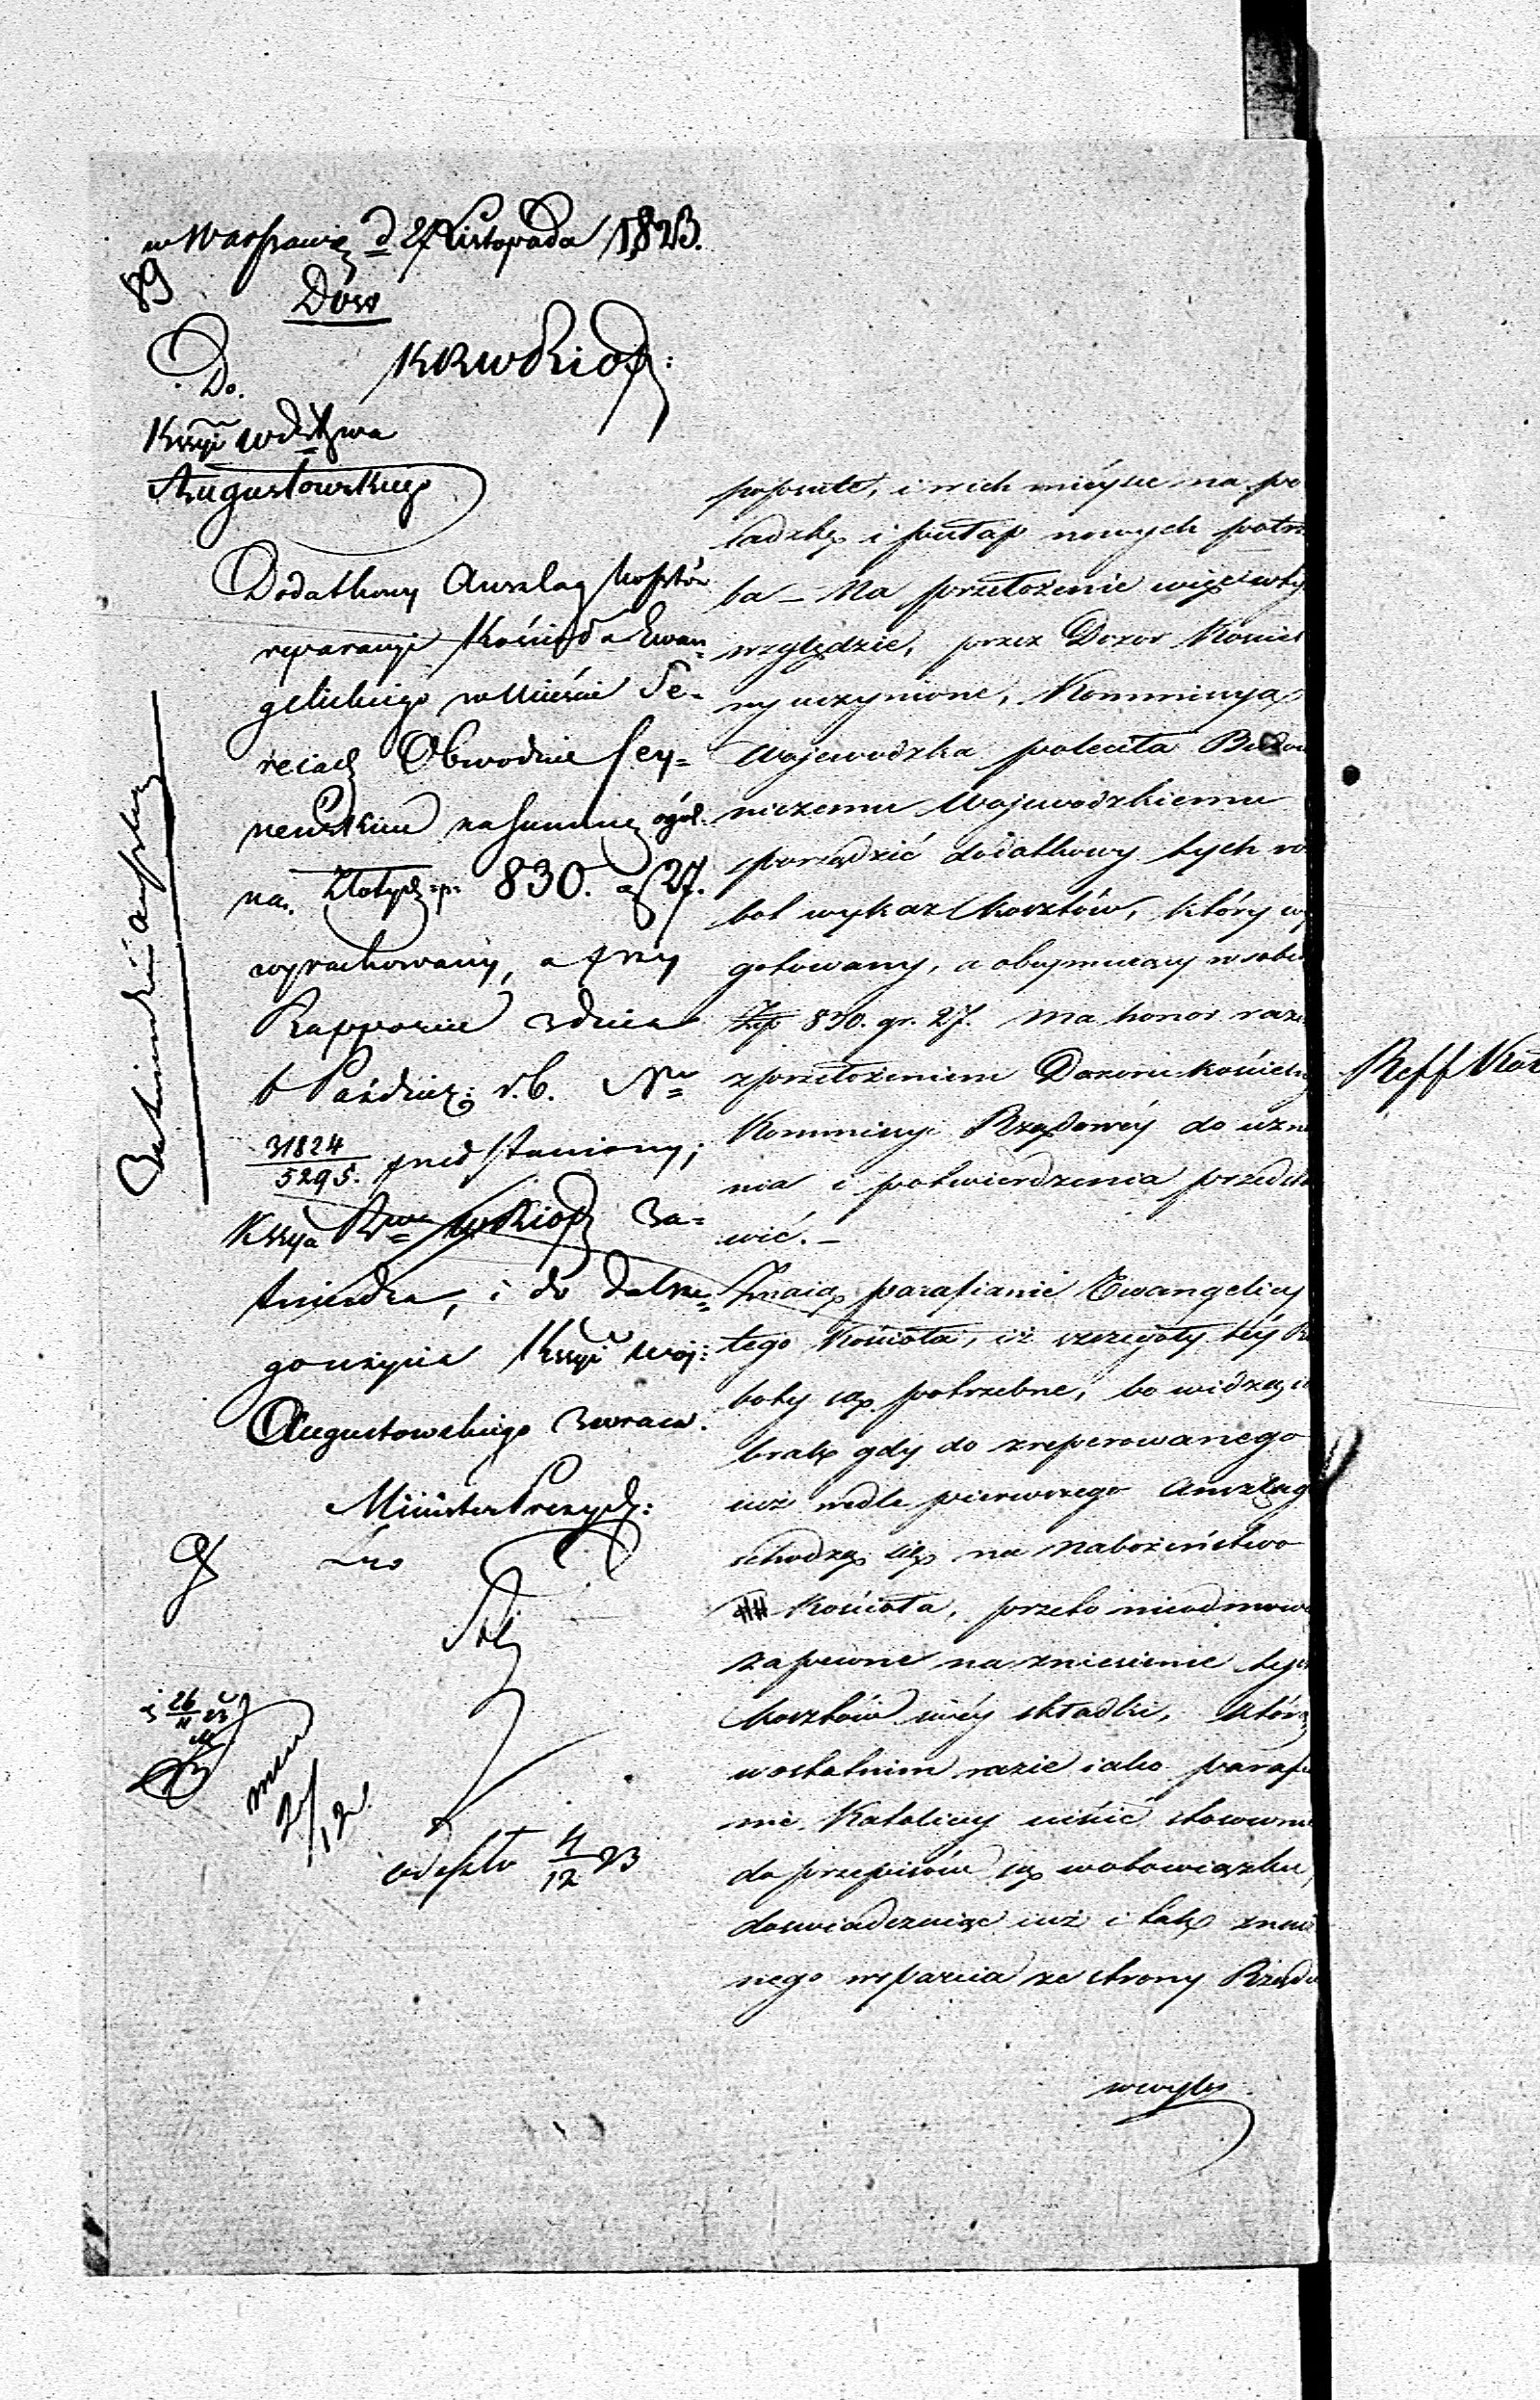 w Warszawie d 27 Listopada 1823.
89
Dów
KRWRiOP:
Do.
Kssyi Wdztwa
Augustowskiego
Dodatkowy Anszlag kosztów
reparacyi Kościoła Ewan=
gelickiego w Mieście Se=
reiach Obwodzie Sey=
neńskim na summę ogól=
na. Złotych p. 830. g 27.
wyrachowany, a przy
Rapporcie z dnia
6 Paździer: r.b. Nro
31824/5295. przedstawiony;
Kssya Rwa WRiOP za=
twierdza, i do dalsze=
go użycia Kssyi Woj:
Augustowskiego zwraca.
Minister Prezyd:
26/11 23
2/12
odeszło 4/12 23
popsute, i w ich mieysce na po
sadzkę i pułap nowych potrze
ba – Na przełożenie więc w ty
względzie, przez Dozor Kościel
ny uczynione, Kommissya
Woiewodzka poleciła Budow
niczemu Woiewodzkiemu
sporządzić dodatkowy tych ro
bot wykaz kosztów, który wy
gotowany, a obeymuiący w sobie
Złp 830. gr. 27. ma honor raze
z przełożeniem Dozoru Kościeln
Kommissyi Rządowéy do uzna
nia i potwierdzenia przedsta
wić. –
Znaią parafianie Ewangelicy
tego Kościoła, iż szczegoły téy Ro
boty są potrzebne, bo widzą ich
brak gdy do zreperowanego
iuż wedle pierwszego Anszlagu
schodzą się na nabożeństwo
Kościoła, przeto nieodmowią
zapewne na zniesienie tych
kosztów swéy składki, którą
w ostatnim razie iako parafia
nie Katolicy uiścić stosownie
do przepisów są w obowiązku,
doświadczaiąc iuż i tak znacz
nego wsparcia ze strony Rządu